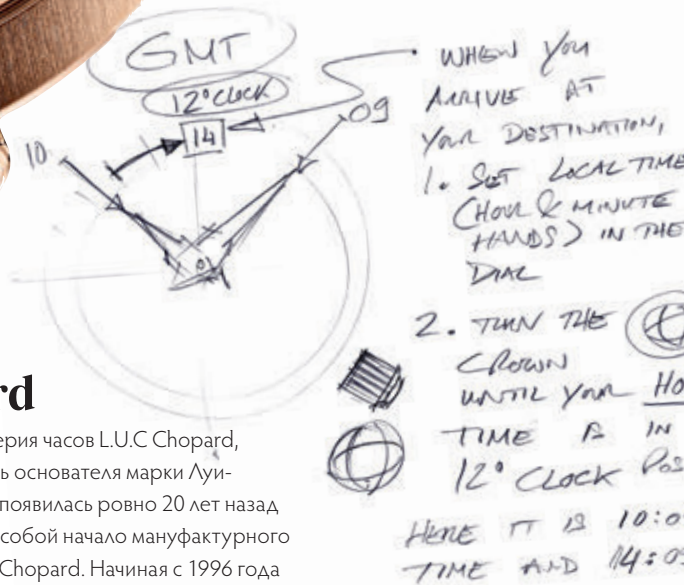 GMT
12°CLOCK
14
10
09
WHEN YOU
ARRIVE AT
YOUR DESTINATION,
1. SET LOCAL TIME
(HOUR & MINUTE
HANDS) IN THE
DIAL
2. TURN THE
CROWN
UNTIL YOUR HO
TIME IS IN
12° CLOCK POS
HERE IT IS 10:0
TIME AND 14:09
rd
ерия часов L.U.C Chopard,
ь основателя марки Луи-
появилась ровно 20 лет назад
собой начало мануфактурного
Chopard. Начиная с 1996 года